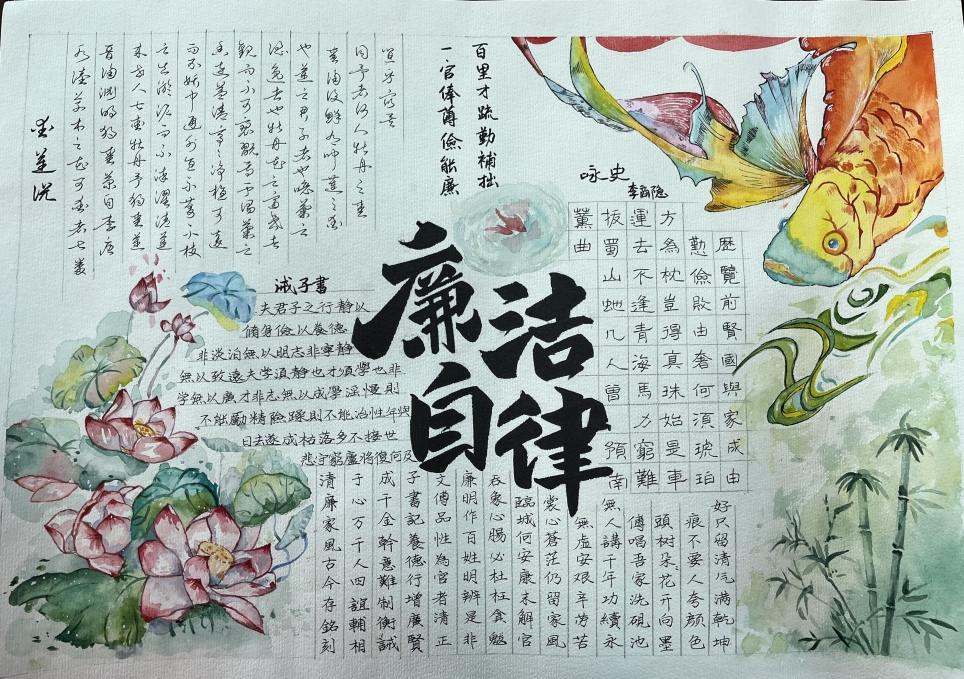 百里才疏勤補拙
一官俸薄儉能廉
廉洁
自律
咏史
李商隐
歷覽前賢國與家成由
勤儉敗由奢何須琥珀
方為枕豈得真珠始是車
運去不逢青海馬力窮難
拔蜀山虵几人曾預南
薰曲
爱莲说
水陸草木之花可爱者甚蕃
晋陶淵明独爱菊自李唐
来世人甚爱牡丹予独爱蓮
之出淤泥而不染濯清漣
而不妖中通外直不蔓不枝
香遠益清亭亭净植可遠
觀而不可亵玩焉予谓菊之
隐逸者也牡丹花之富贵者
也蓮之君子者也噫菊之
爱陶后鮮有闻蓮之爱
同予者何人牡丹之爱
宜乎众矣
诫子書
夫君子之行靜以
脩身儉以養德
非淡泊無以明志非寧靜
無以致遠夫学須靜也才須學也非
学無以廣才非志無以成學淫慢則
不能勵精險躁則不能治性年與
日去遂成枯落多不接世
悲守窮廬將復何及
好只留清气滿乾坤
痕不要人夸顏色
頭树朵朵花开向墨
傅唱吾家洗硯池
無人講千年功續永
無虛安艰辛劳苦
裳心蒼茫仍留家風
臨城何安康未解官
吞象心賜必杜枉食魁
廉明作百姓明辨是非
文傅品性為官者清正
子書記養德行增廣賢
成千金幹意難制衡誡
于心万千人四誼輔相
清廉家風古今存銘刻